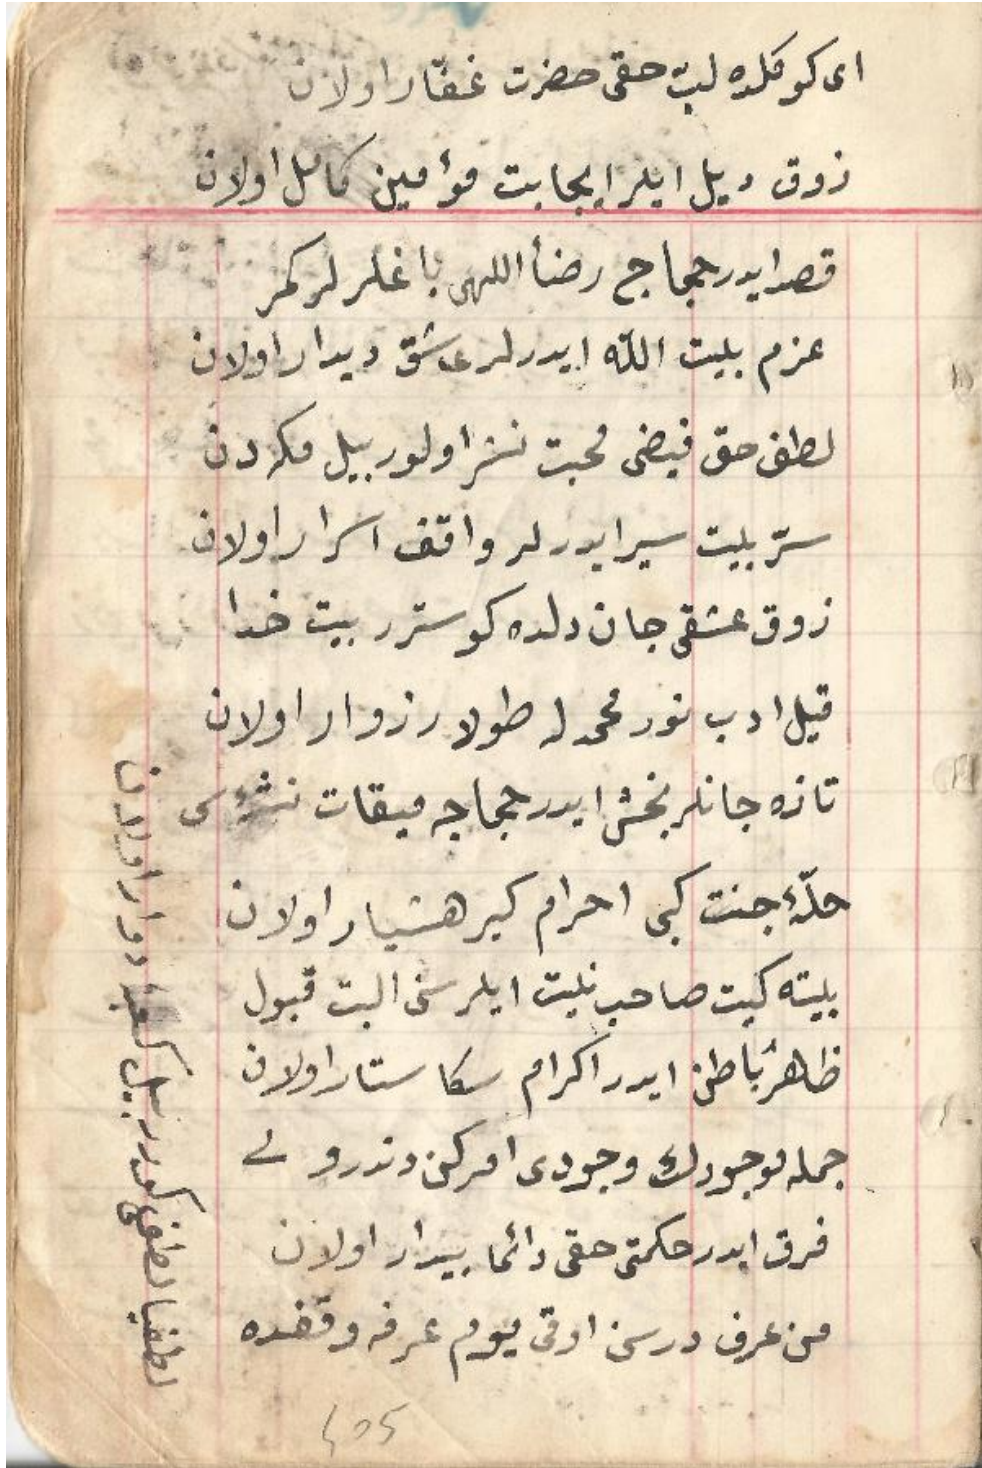 ای كوكلده لبت حقی حضرت غفّار اولان
ذوق دیل ایلر ایجابت مؤمین كامل اولان
قصد ایدر حججاج رضأ اللهی باغلر لر كمر
عزم بیت اللّه ایدرلر عاشق دیدار اولان
لطف حق فیضی محبت نشر اولور بیل مكه دن
سرّ بیت سیر ایدرلر واقف اسرار اولان
زوق عشقی جان دلده كوسترر بیت خدا
قیل ادب نور محمد له طولار زوار اولان
تازه جانلر بخش ایدر حججاجه میقات نشئه سی
حلّهٔ جنت كبی احرام كیر هشیار اولان
بیته كیت صاحب نیت ایلر سنی البت قبول
ظاهرًا باطن ایدر اكرام سكا ستار اولان
جمله موجودك وجودی امر كن دندر
فرق ایدر حكمتی حقی دائما بیدار اولان
من عرف درسن اوقی یوم عرفه وقفده
لطفیا لطفی كورر بیل اولان